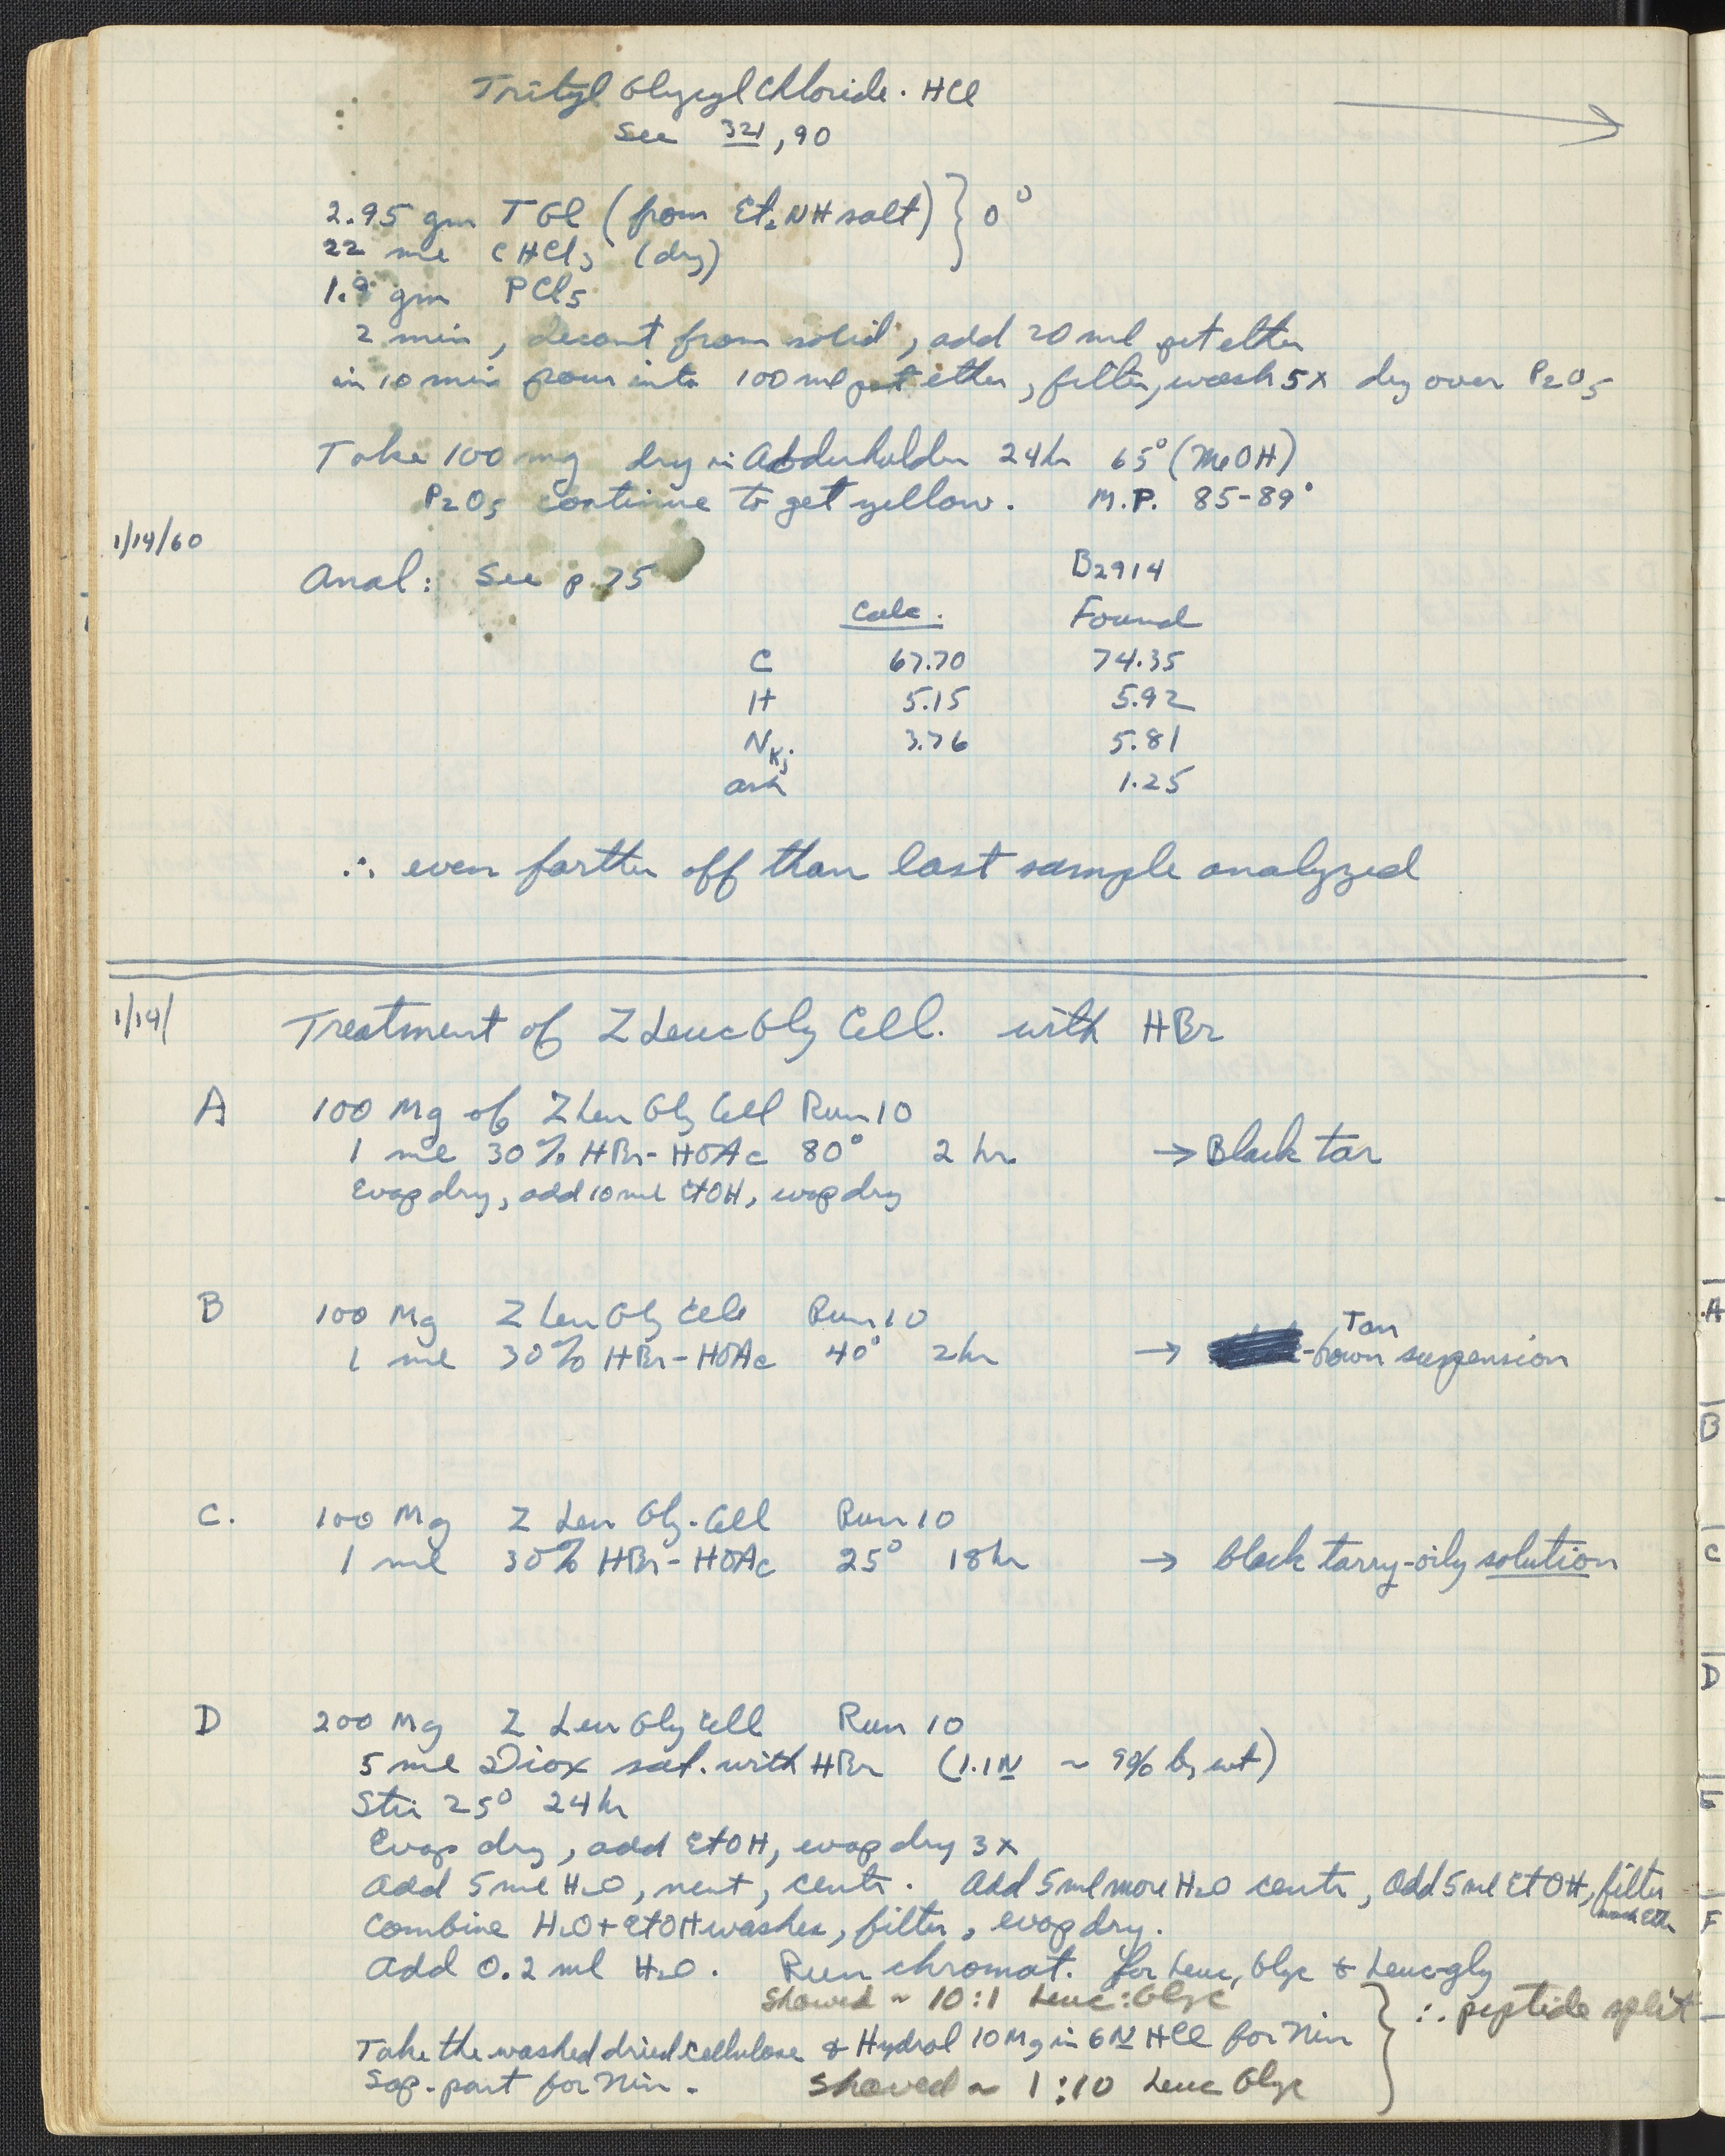 Trityl Glycyl Chloride · HCl
See 321, 90
2.95 gm T Gl (from Et2NH salt) } 0°
22 ml CHCl3 (dry)
1.9 gm PCl5
2 min, decant from solid, add 20 ml pet ether
in 10 min pour into 100 ml pet ether, filter, wash 5x dry over P2O5
Take 100 mg dry in Abderhalden 24 hr 65° (MeOH)
P2O5 continue to get yellow. M.P. 85-89°
1/14/60
Anal: See p. 75
B2914
Calc. Found
C 67.70 74.35
H 5.15 5.92
NKj 3.76 5.81
ash 1.25
∴ even farther off than last sample analyzed
1/14/ Treatment of Z Leuc Gly Cell. with HBr
A 100 Mg of Z Leu Gly Cell Run 10
1 ml 30% HBr-HOAc 80° 2 hr → Black tar
Evap dry, add 10 ml EtOH, evap dry
B 100 Mg Z Leu Gly Cell Run 10
1 ml 30% HBr-HOAc 40° 2 hr → Tan -brown suspension
C. 100 Mg Z Leu Gly-Cell Run 10
1 ml 30% HBr-HOAc 25° 18 hr → black tarry-oily solution
D 200 Mg Z Leu Gly Cell Run 10
5 ml Diox sat. with HBr (1.1N ~ 9% by wt)
Stir 25° 24 hr
Evap dry, add EtOH, evap dry 3x
Add 5 ml H2O, neut, centr. Add 5 ml more H2O centr, Add 5 ml EtOH, filter
wash Eth
Combine H2O + EtOH washes, filter, evap dry.
Add 0.2 ml H2O. Run chromat. for Leuc, Glyc & Leuc-gly
Showed ~ 10:1 Leuc:Glyc
} ∴ peptide split
Take the washed dried cellulose & Hydrol 10 Mg in 6N HCl for Nin
Sap. part for Nin. Showed ~ 1:10 Leuc Glyc
A
B
C
D
E
F